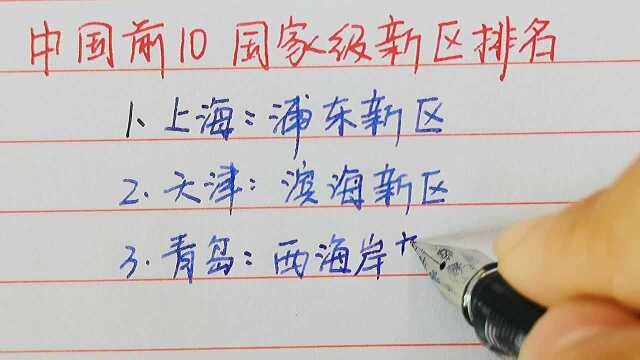 中国前10国家级新区排名
1、上海：浦东新区
2.天津：滨海新区
3.青岛：西海岸